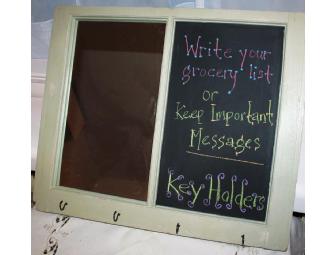 Write your
grocery list
or
Keep Important
Messages
Key Holders